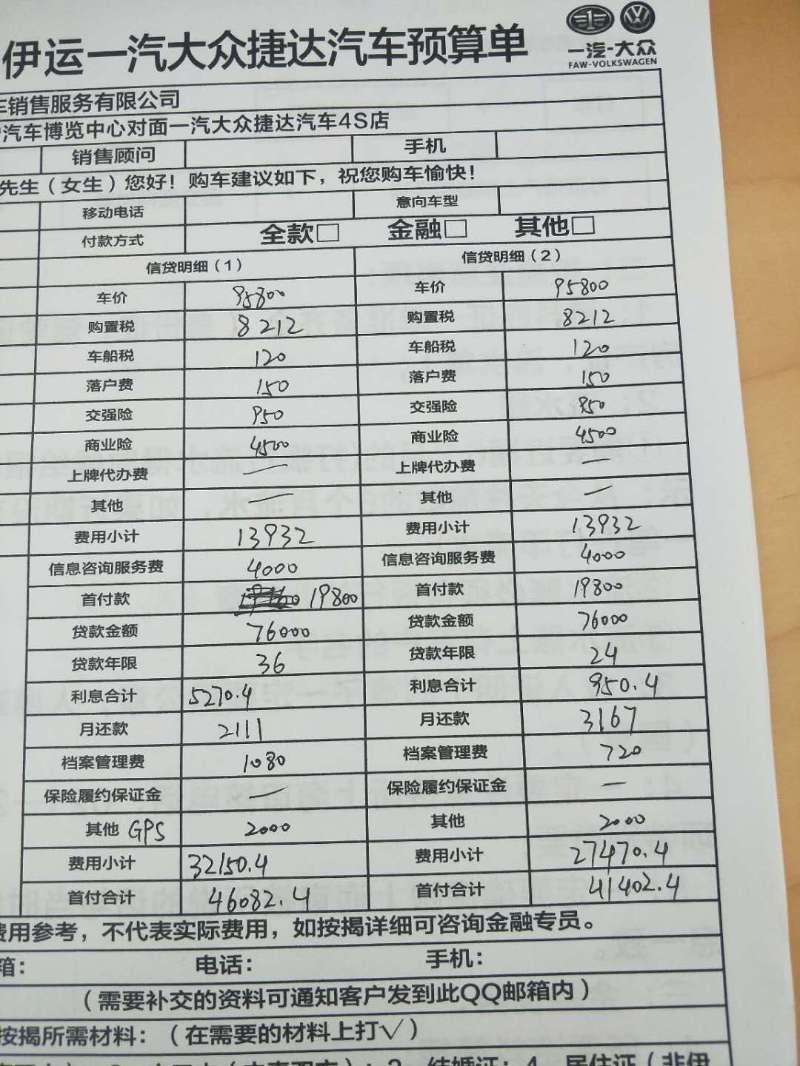 伊运一汽大众捷达汽车预算单
一汽-大众
FAW-VOLKSWAGEN
车销售服务有限公司
汽车博览中心对面一汽大众捷达汽车4S店
销售顾问 手机
先生（女生）您好！购车建议如下，祝您购车愉快！
移动电话 意向车型
付款方式 全款□ 金融□ 其他□
信贷明细（1） 信贷明细（2）
车价 95800 车价 95800
购置税 8212 购置税 8212
车船税 120 车船税 120
落户费 150 落户费 150
交强险 950 交强险 950
商业险 4500 商业险 4500
上牌代办费 — 上牌代办费 —
其他 — 其他 —
费用小计 13932 费用小计 13932
信息咨询服务费 4000 信息咨询服务费 4000
首付款 19800 首付款 19800
贷款金额 76000 贷款金额 76000
贷款年限 36 贷款年限 24
利息合计 5270.4 利息合计 950.4
月还款 2111 月还款 3167
档案管理费 1080 档案管理费 720
保险履约保证金 — 保险履约保证金 —
其他 GPS 2000 其他 2000
费用小计 32150.4 费用小计 27470.4
首付合计 46082.4 首付合计 41402.4
费用参考，不代表实际费用，如按揭详细可咨询金融专员。
箱： 电话： 手机：
（需要补交的资料可通知客户发到此QQ邮箱内）
按揭所需材料：（在需要的材料上打√）
结婚证；4、居住证（非伊